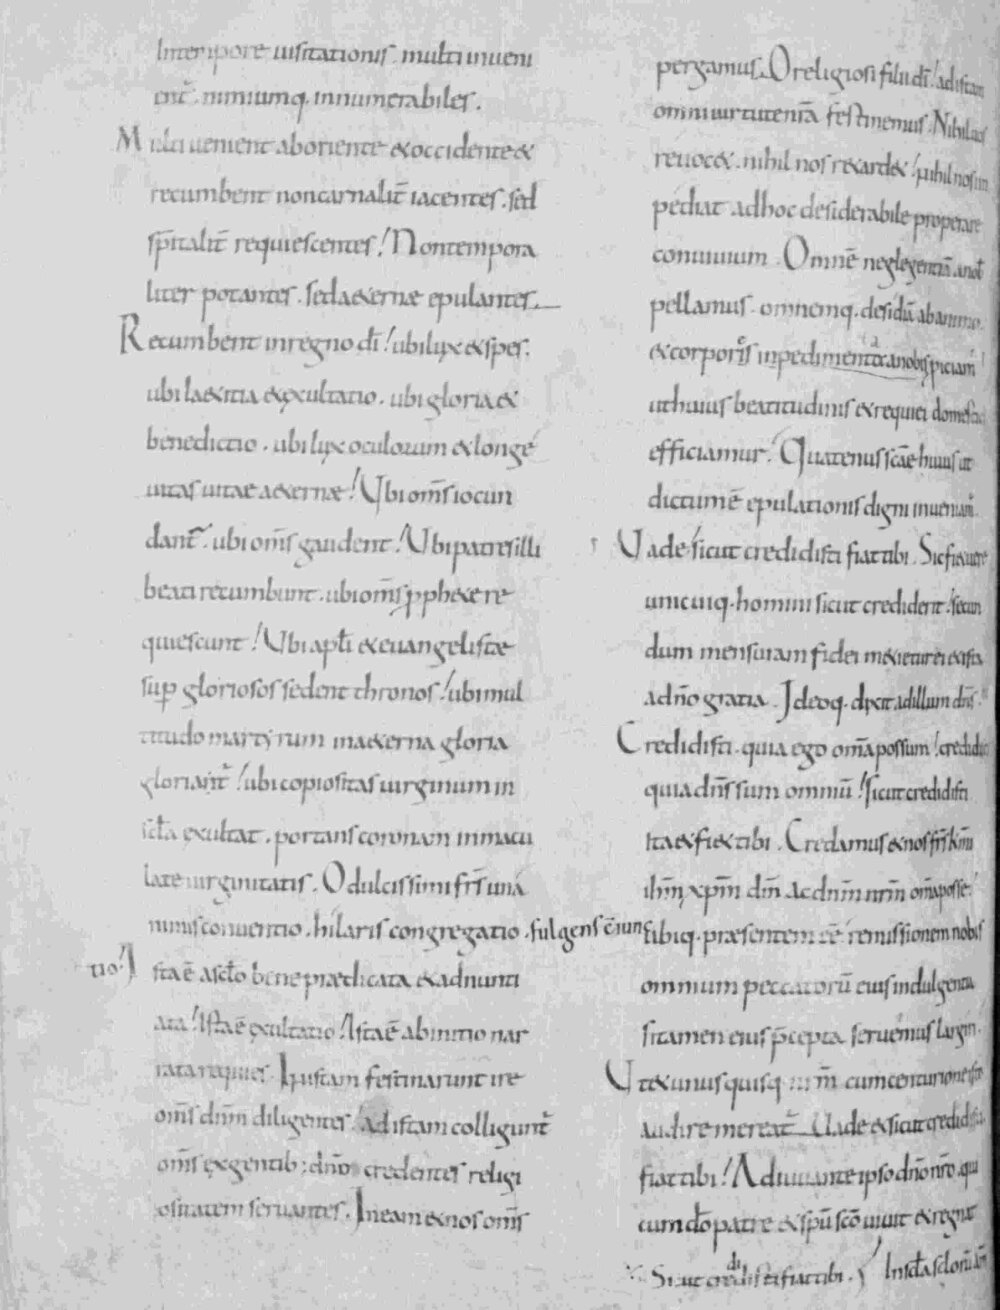 Intempore uisitationis. multi inueni
ent̃. nimiumq. innumerabiles.
Multi uenient aboriente &occidente&
recumbent noncarnalit̃ iacentes. sed
sp̄italit̃ requiescentes! Nontempora
liter potantes. seda&ernæ epulantes.
Recumbent inregno dī! ubilux &spes.
ubila&itia &exultatio. ubigloria&
benedictio. ubilux oculorum &longe
uitas uitae a&ernæ! Ubiom̄s iocun
dant̃. ubiom̄s gaudent! Ubipatresilli
beati recumbunt. ubiom̄s pph&ae re
quiescunt! Ubi aptł &euangelistæ
sup gloriosos sedent thronos! ubi mul
titudo martyrum ina&erna gloria
gloriant̃! ubi copiositas uirginum in
sctā exultat. portans coronam inmacu
late uirginitatis. O dulcissimi frs̄ una
nimis conuentio. hilaris congregatio. fulgens c̄iun
tio! I
sta ē asctō bene prædicata &adnunti
ata! Ista ē exultatio! Ista ē abinitio nar
rata requies. Ipsistam festinarunt ire
om̄s dnm̄ diligentes! adistam colligunt̃
om̄s exgentib; dnō credentes religi
ositatem seruantes. Ineam &nos om̄s
pergamus. O religiosi filii dī! adistam
omni uirtute uiā festinemus. Nihil nos
reuoc&. nihil nos r&ard&! nihil nos im
pediat adhoc desiderabile properare
conuiuium. Omnē neglegentiā anob
pellamus. omnemq. desidiā abanimo
&corporis inpedimenta anobis piciam!
uthuius beatitudinis &requiei domestici
efficiamur. Quatenus scāe huius ut
dictum ē epulationis digni inueniam̃.
Uade sicut credidisti fiat tibi. Sic fi& uere
unicuiq. homini sicut crediderit! secun
dum mensuram fidei m&i&ur ei &ista
adnō gratia. Ideoq. dixit adillum dns̄.
Credidisti. quia ego om̄a possum! credidisti
quia dns̄ sum omniū! sicut credidisti
ita & fi& tibi. Credamus &nos frs̄ km̄i
ihm̄ xpm̄ dm̄ ac dnm̄ nrm̄ om̄a posse.
sibiq. præsentem eē remissionem nobis
omnium peccatorū eius indulgentia
si tamen eius p̄cepta seruemus largiri.
Ut &unusquisq. nrm̄ cumcenturione isto
audire mereat̃. Uade &sicut credidisti
fiat tibi! Adiuuante ipso dnō nr̄o. qui
cum dō patre &spū scō uiuit &regnat
Sicut credidisti fiat tibi. Insctā sctorū am̄